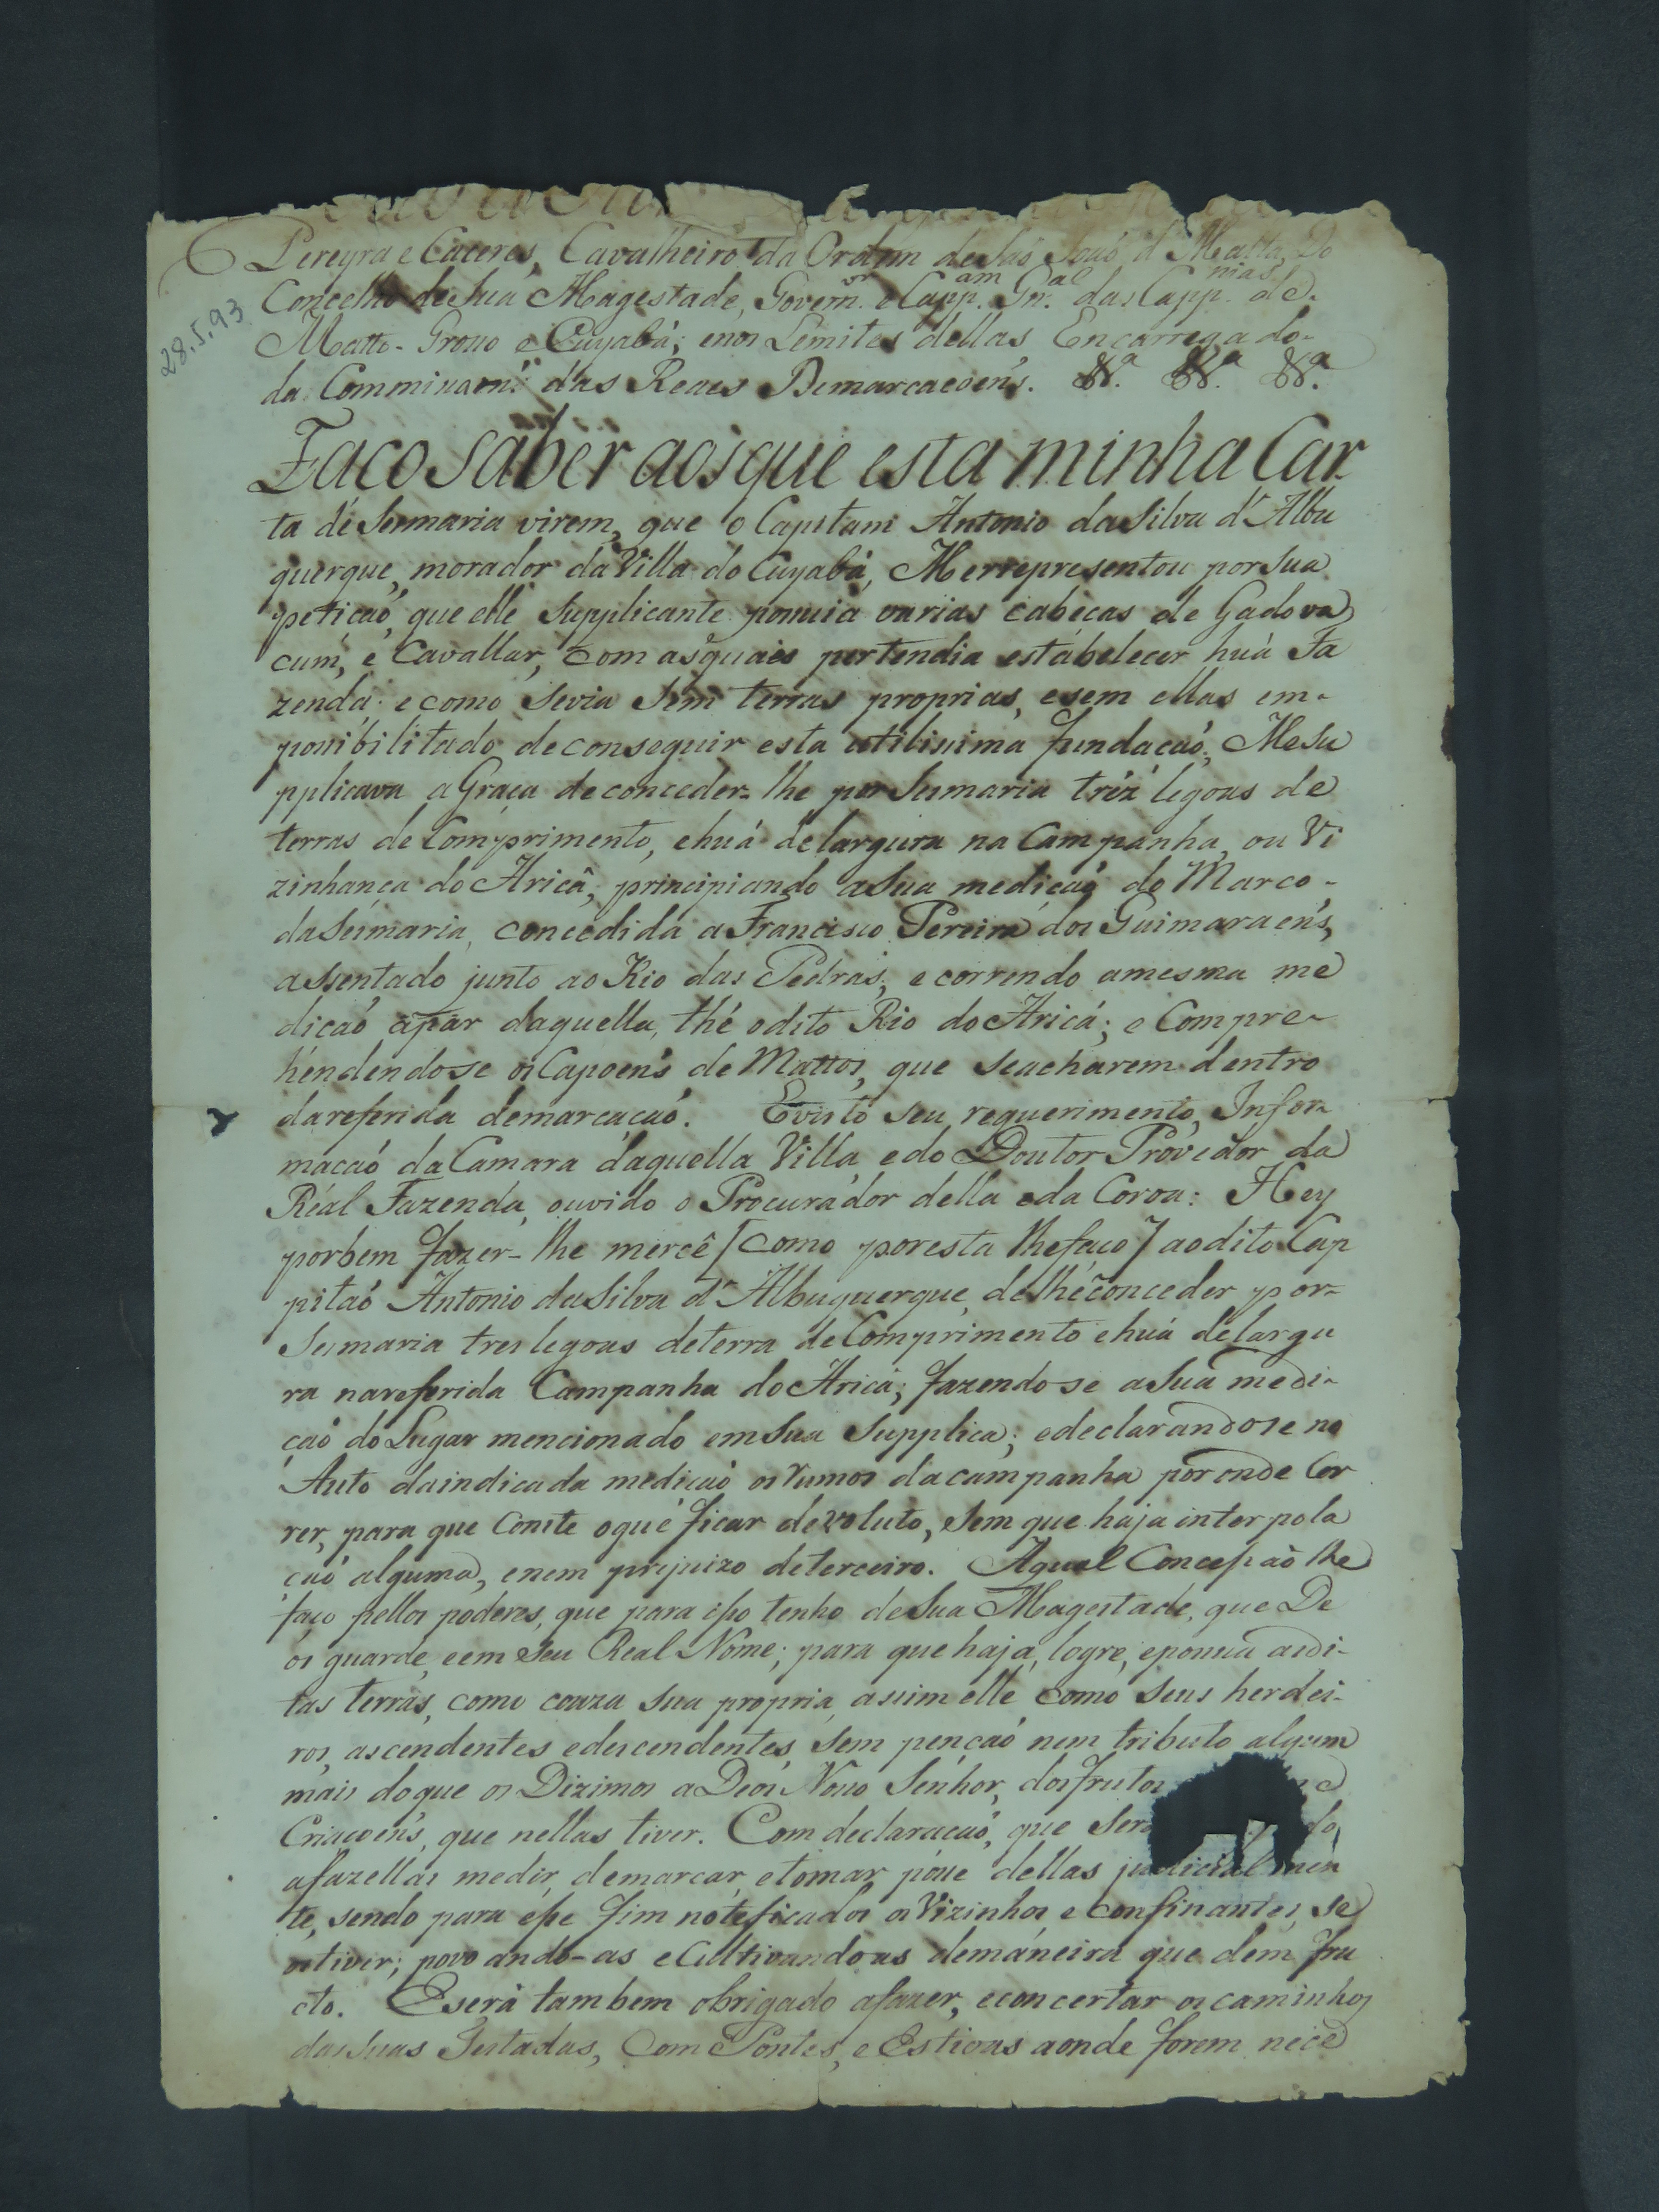 Pereyra e Caceres, Cavalheiro da Ordem de Saó Joaó d'Malta, Do
Concelho de Sua Magestade, Govern.or e Capp.am Gn.al das Capp.nias de
28.5.93
Matto-Grosso e Cuyabá; enos Lemites dellas Encarregado
da Commissam das Reaes Demarcacoens. &.ª &.ª &.ª
Faco Saber aos que esta minha Car
ta de Sesmaria virem, que o Capitam Antonio da Silva d'Albu
querque, morador da Villa do Cuyabá, Merrepresentou por sua
peticaó, que elle Supplicante possuia varias cabecas de Gado va
cum, e Cavallar, com asquaes pertendia estabelecer huá Fa
zenda: e como sevia sem terras proprias, esem ellas em-
possibilitado de conseguir esta utilissima fundacaó, Mesu
pplicava a Graça de conceder-lhe por Sesmaria tréz legoas de
terras de Comprimento, ehuá de largura na Campanha, ou Vi
zinhança do Aricá, principiando a Sua medicaó do Marco-
da Sesmaria, concedida a Francisco Pereira dos Guimaraens,
assentado junto ao Rio das Pedras, e correndo amesma me
dicaó apar daquella, thé odito Rio do Aricá; e Compre-
héndendose os Capoens de Mattos, que seacharem dentro
dareferida demarcacaó. Evisto seu requerimento, Infor-
macaó da Camara daquella Villa, edo Doutor Provedor da
Real Fazenda, ouvido o Procurador della eda Coroa: Hey
porbem fazer-lhe mercê [como poresta lhefaco] aodito Cap
pitaó Antonio da Silva d'Albuquerque, delhe conceder por-
Sesmaria tres legoas deterra de Comprimento ehuá delargu
ra nareferida Campanha do Aricá; fazendose a Sua medi-
caó do Lugar mencionado em Sua Supplica; edeclarandose no
Auto daindicada medicaó os rumos dacampanha poronde Cor
rer, para que Conste oque ficar devoluto, sem que haja interpola
caó alguma, enem prejuizo deterceiro. Aqual Concessaó lhe
faco pellos poderes, que para isso tenho de Sua Magestade, que De
os guarde, eem seu Real Nome; para que haja, logre, epossua asdi-
tas terras, como couza sua propria, assim elle, como seus herdei-
ros, ascendentes edescendentes, sem pencaó nem tributo algum
mais doque os Dizimos a Deos Nosso Senhor, dosfrutos
Criacoens, que nellas tiver. Com declaracaó, que do
afazellas medir, demarcar, etomar posse dellas judicialmen
te, sendo para esse fim noteficados os Vizinhos e confinantes, se
ostiver; povoando-as e Cultivandoas demaneira que dem fru
cto. Eserá tambem obrigado afazer, econcertar oscaminhos
das suas Testadas, com Pontes, e Estivas aonde forem nece